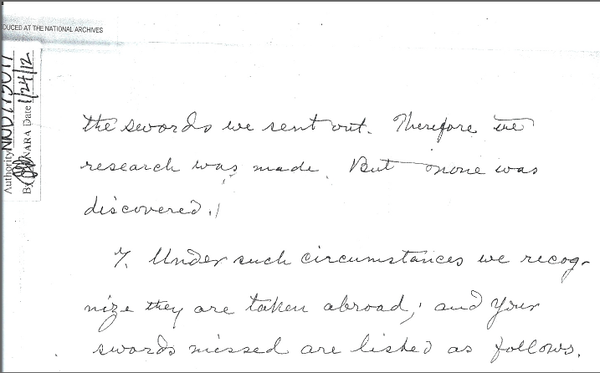 DUCED AT THE NATIONAL ARCHIVES
Authority NND
By NARA Date 1/24/12
the swords we sent out. Therefore
research was made. But none was
discovered.
7. Under such circumstances we recog-
nize they are taken abroad; and your
swords missed are listed as follows.